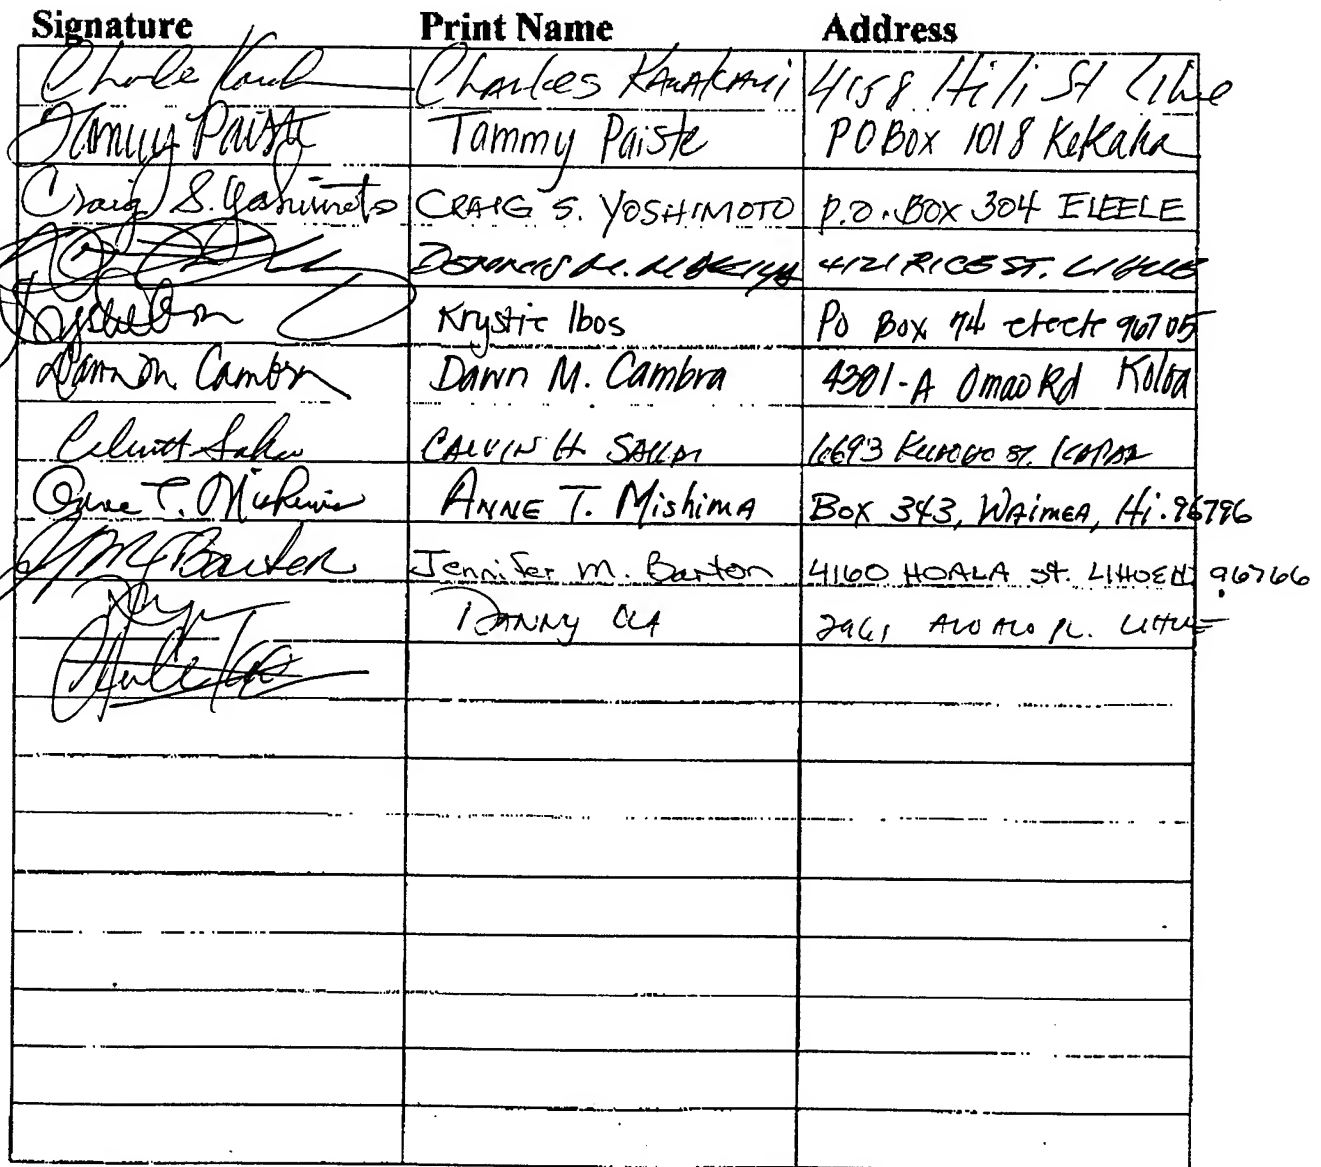 Signature Print Name Address
Charles Kawakami 4158 Hili St Lihue
Tammy Paiste Tammy Paiste PO Box 1018 Kekaha
Craig S. Yoshimoto CRAIG S. YOSHIMOTO P.O. BOX 304 ELEELE
4121 RICE ST. LIHUE
Krystle Ibos PO Box 74 eleele 96705
Dawn M. Cambra Dawn M. Cambra 4301-A Omao Rd Koloa
CALVIN H. SAKAI 6693 ST. KAPAA
Anne T. Mishima ANNE T. Mishima BOX 343, WAIMEA, Hi. 96796
JM Barton Jennifer M. Barton 4160 HOALA St. LIHUE HI 96766
DANNY OLA 2961 ALOALO PL. LIHUE